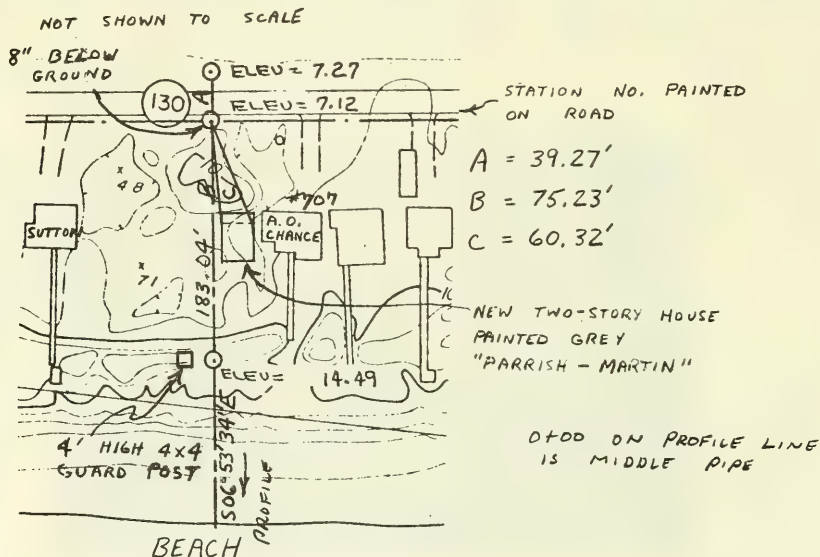 NOT SHOWN TO SCALE
8" BELOW
GROUND
ELEV = 7.27
A
130
ELEV = 7.12
STATION NO. PAINTED
ON ROAD
A = 39.27'
B = 75.23'
C = 60.32'
48
B
C
#707
SUTTON
A.O.
CHANCE
71
183.04'
NEW TWO-STORY HOUSE
PAINTED GREY
"PARRISH - MARTIN"
ELEV = 14.49
4' HIGH 4x4
GUARD POST
S06°53'34"E
PROFILE
0+00 ON PROFILE LINE
IS MIDDLE PIPE
BEACH